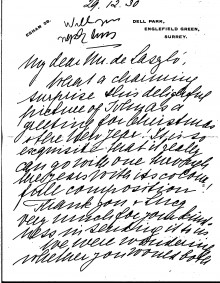 29.12.30
EGHAM 39.
Will you
DELL PARK,
ENGLEFIELD GREEN,
SURREY.
My dear Mr. de Laszlo,
What a charming
surprise this delightful
picture of
greeting for Christmas
& the New Year. It is so
exquisite that it really
can go with one through
the years with its
full composition!
Thank you
very much for your
ness in sending it to
We were wondering
whether you would both